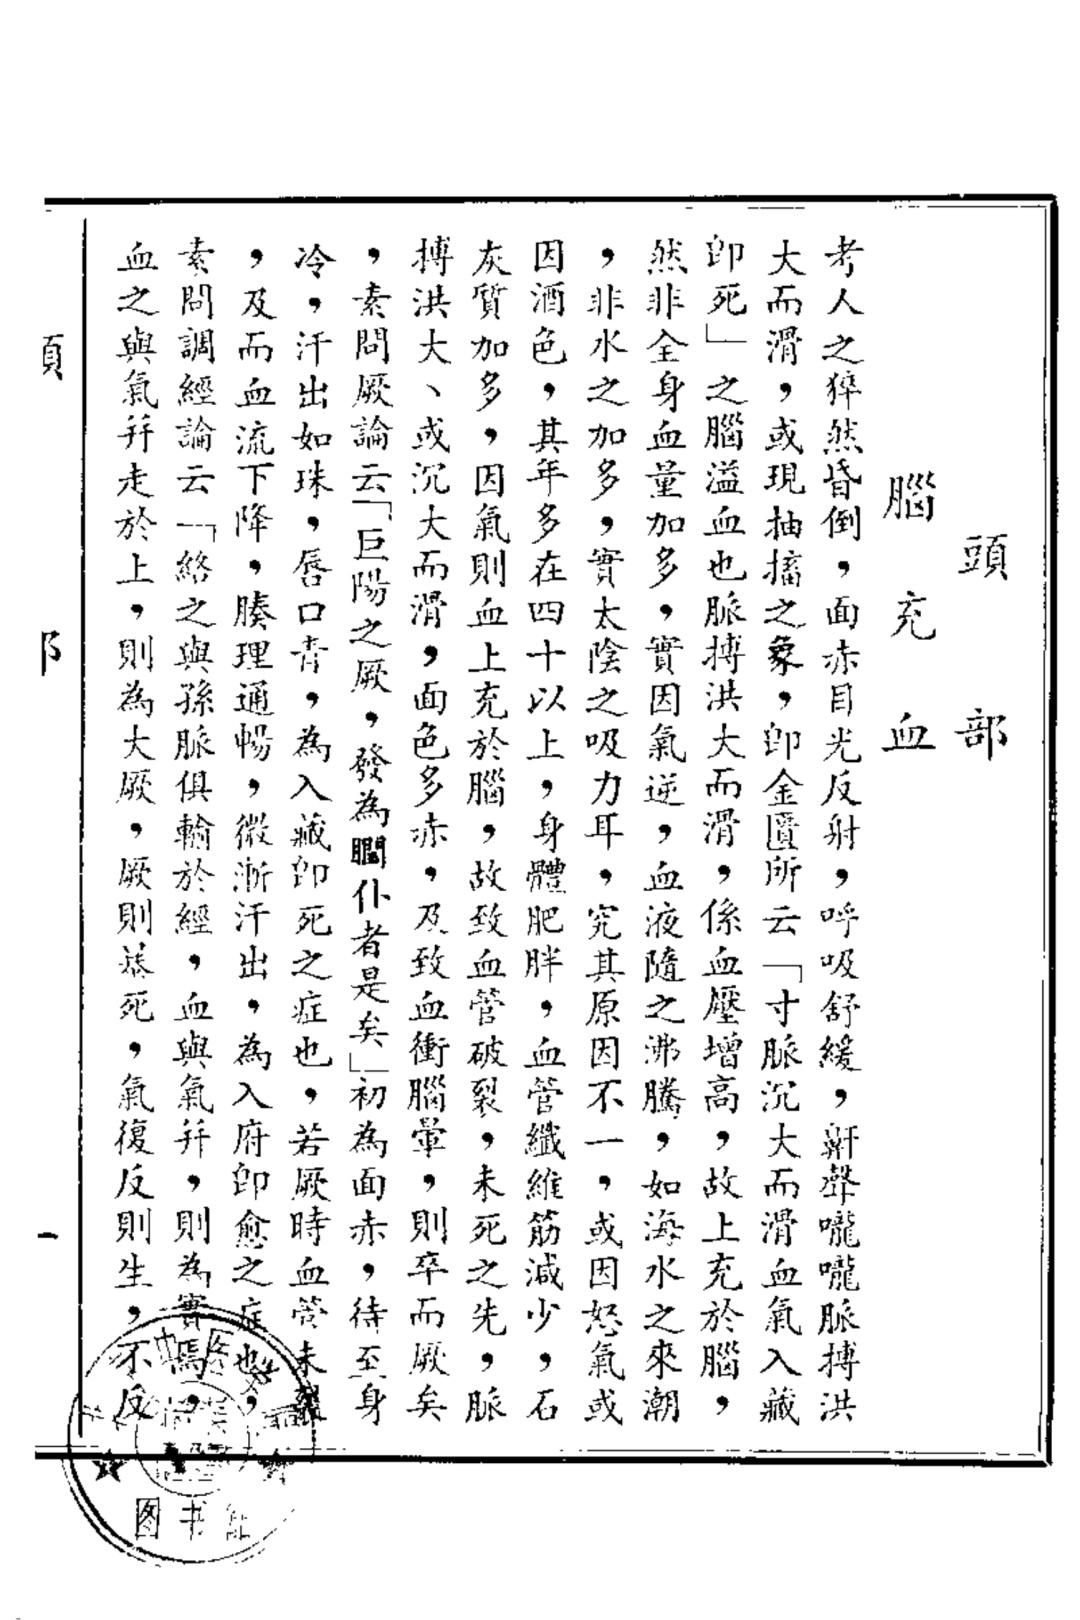 頭部
腦充血
考人之猝然昏倒，面赤目光反射，呼吸舒緩，鼾聲嚨嚨脈搏洪
大而滑，或現抽搐之象，卽金匱所云「寸脈沉大而滑血氣入藏
卽死」之腦溢血也脈搏洪大而滑，係血壓增高，故上充於腦，
然非全身血量加多，實因氣逆，血液隨之沸騰，如海水之來潮
，非水之加多，實太陰之吸力耳，究其原因不一，或因怒氣或
因酒色，其年多在四十以上，身體肥胖，血管纖維筋減少，石
灰質加多，因氣則血上充於腦，故致血管破裂，未死之先，脈
搏洪大、或沉大而滑，面色多赤，及致血衝腦暈，則卒而厥矣
，素問厥論云「巨陽之厥，發為瞤仆者是矣」初為面赤，待至身
冷，汗出如珠，唇口青，為入藏卽死之症也，若厥時血管未
，及而血流下降，腠理通暢，微漸汗出，為入府卽愈之症也，
素問調經論云「絡之與孫脈俱輸於經，血與氣幷，則為實焉，
血之與氣幷走於上，則為大厥，厥則暴死，氣復反則生，不反
頭　部　一
图书